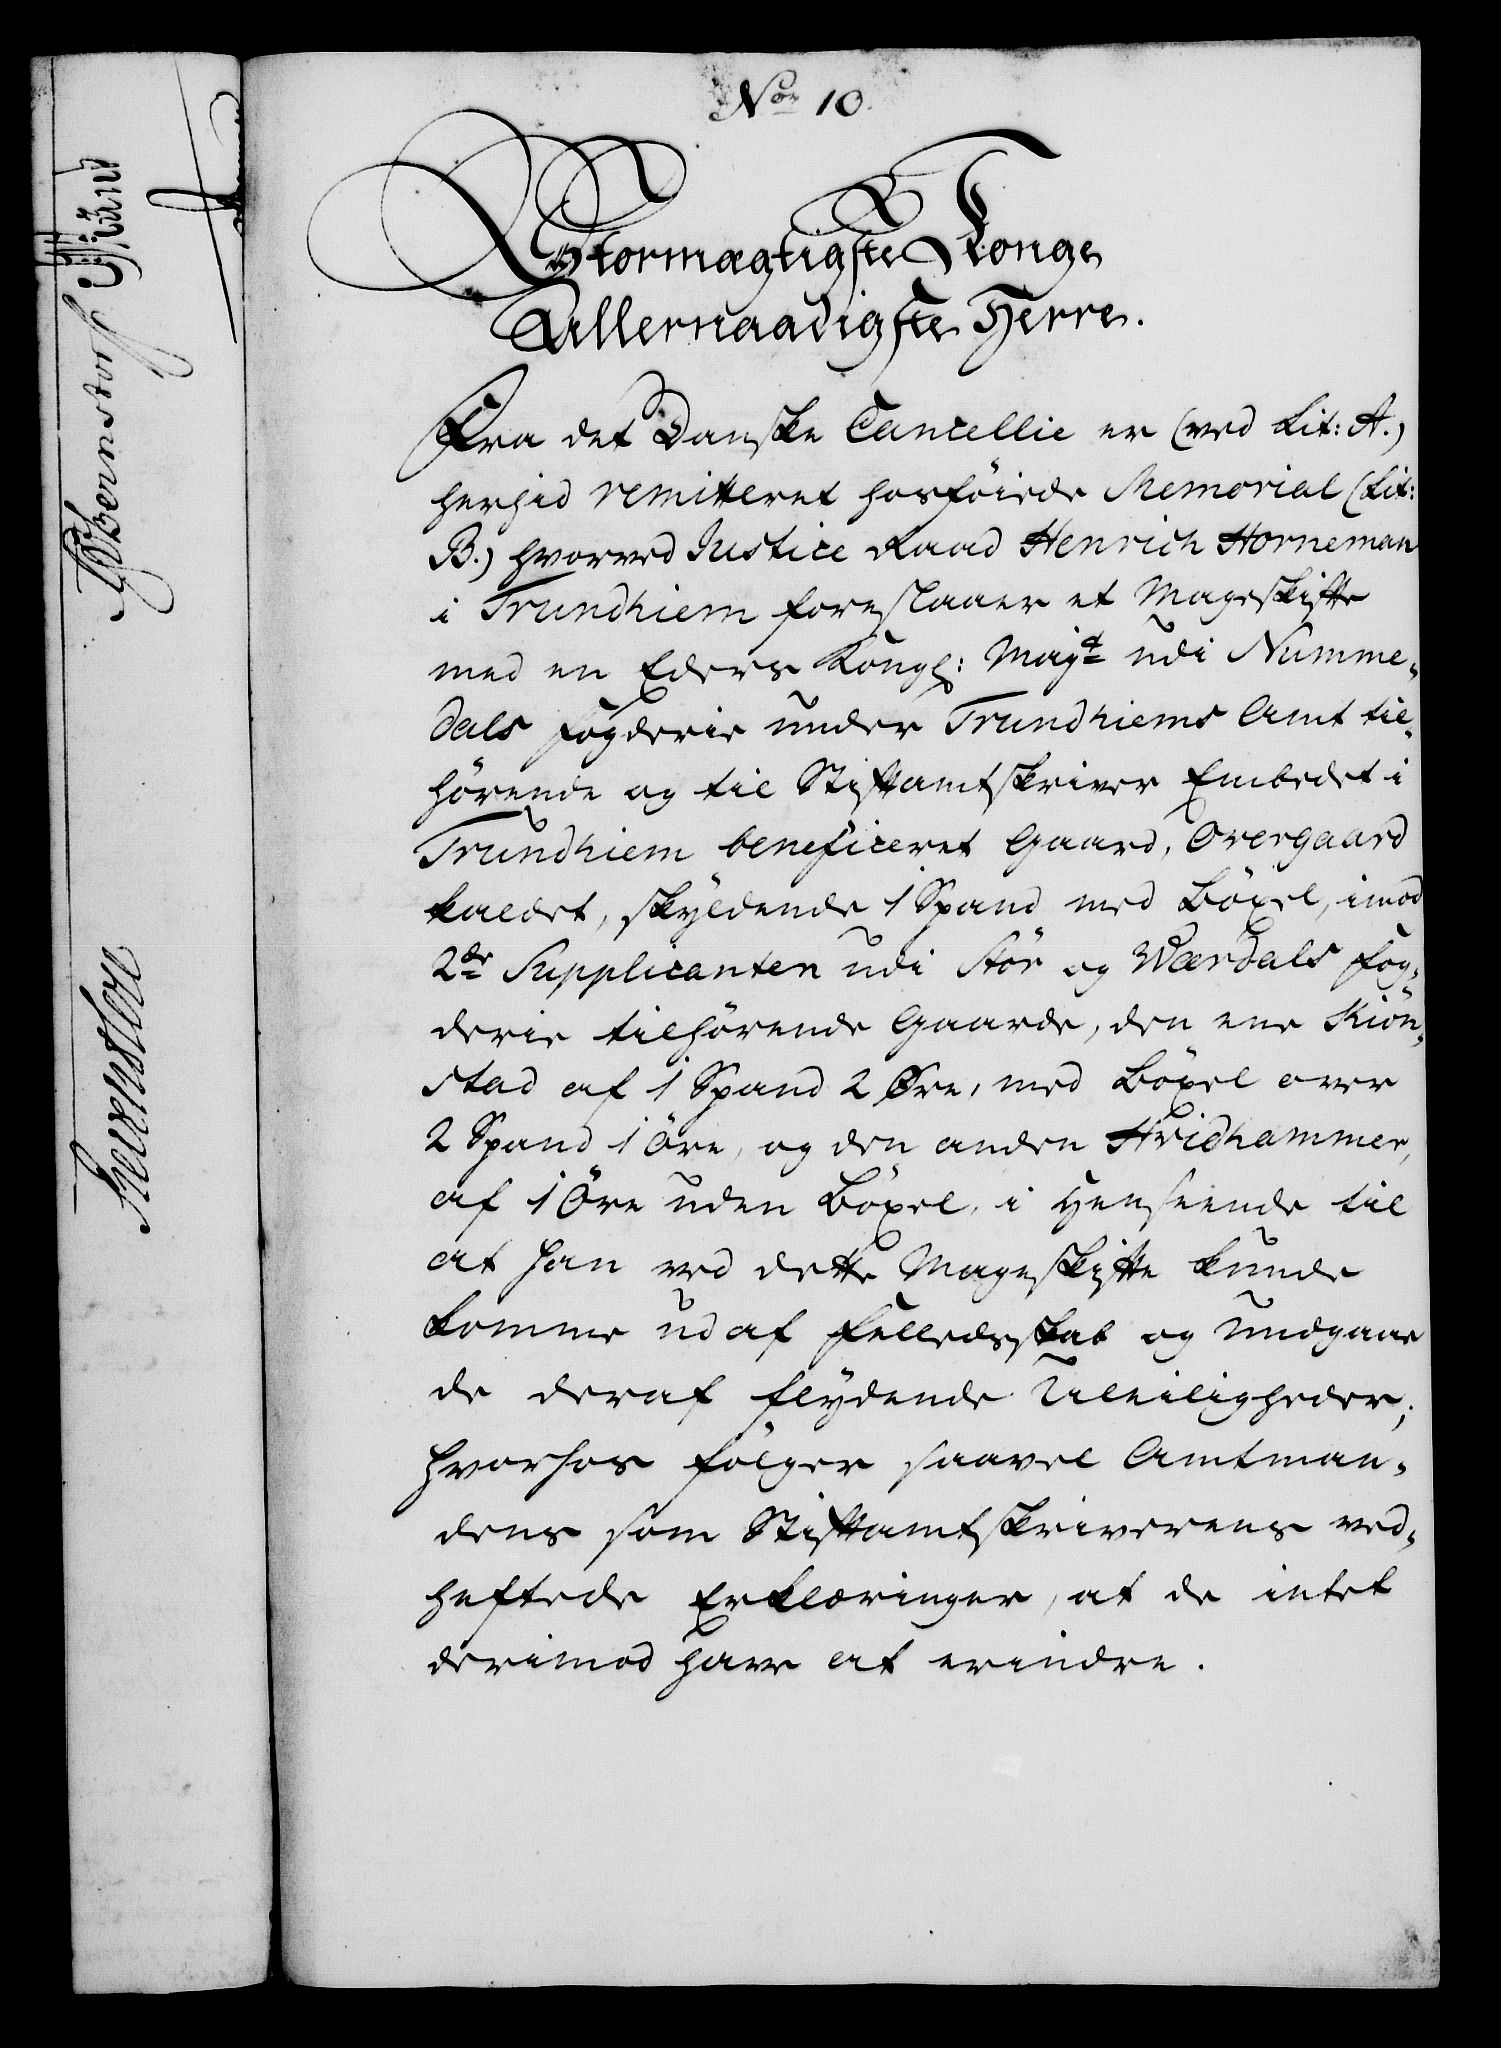 No 10.
Stormægtigste Konge
Allernaadigste Herre.
Fra det Danske Cancellie er (ved Lit: A.)
herhid remitteret hosföiede Memorial (Lit:
B.) hvorved Justice Raad Henrich Horneman
i Trundhiem foreslaaer et Mageskifte
med en Eders Kongl: Mayt udi Numme-
dals Fogderie under Trundhiems Amt til-
hörende og til Stiftamtskriver Embedet i
Trundhiem beneficeret Gaard, Overgaard
kaldet, skyldende 1 Spand med Böxel, imod
2de Supplicanten udi Stör og Værdals Fog-
derie tilhörende Gaarde, den ene Kiön-
stad af 1 Spand 2 Öre, med Böxel over
2 Spand 1 Öre, og den anden Hvidhammer,
af 1 Öre uden Böxel, i Henseende til
at han ved dette Mageskifte kunde
komme ud af Felledsskab og undgaae
de deraf flydende Uleiligheder;
hvorhos fölger saavel Amtman-
dens som Stiftamtskriverens ved-
heftede Erklæringer, at de intet
derimod have at erindre.
Bernstorf